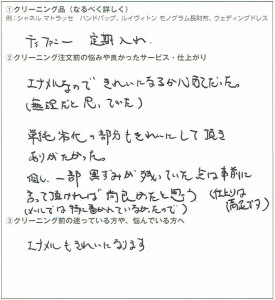 ①クリーニング品（なるべく詳しく）
例：シャネル マトラッセ ハンドバッグ, ルイヴィトン モノグラム長財布、ウェディングドレス
ティファニー 定期入れ
②クリーニング注文前の悩みや良かったサービス・仕上がり
エナメルなので きれいになるか心配だった。
(無理だと思っていた)
単純劣化の部分もきれいにして頂き
ありがたかった。
但し、一部 黒ずみが残っていた点は事前に
言って頂ければ尚良かったと思う
(メールでは特に書かれていなかったので)
(仕上りは
満足です)
③クリーニング前の迷っている方や、悩んでいる方へ
エナメルもきれいになります